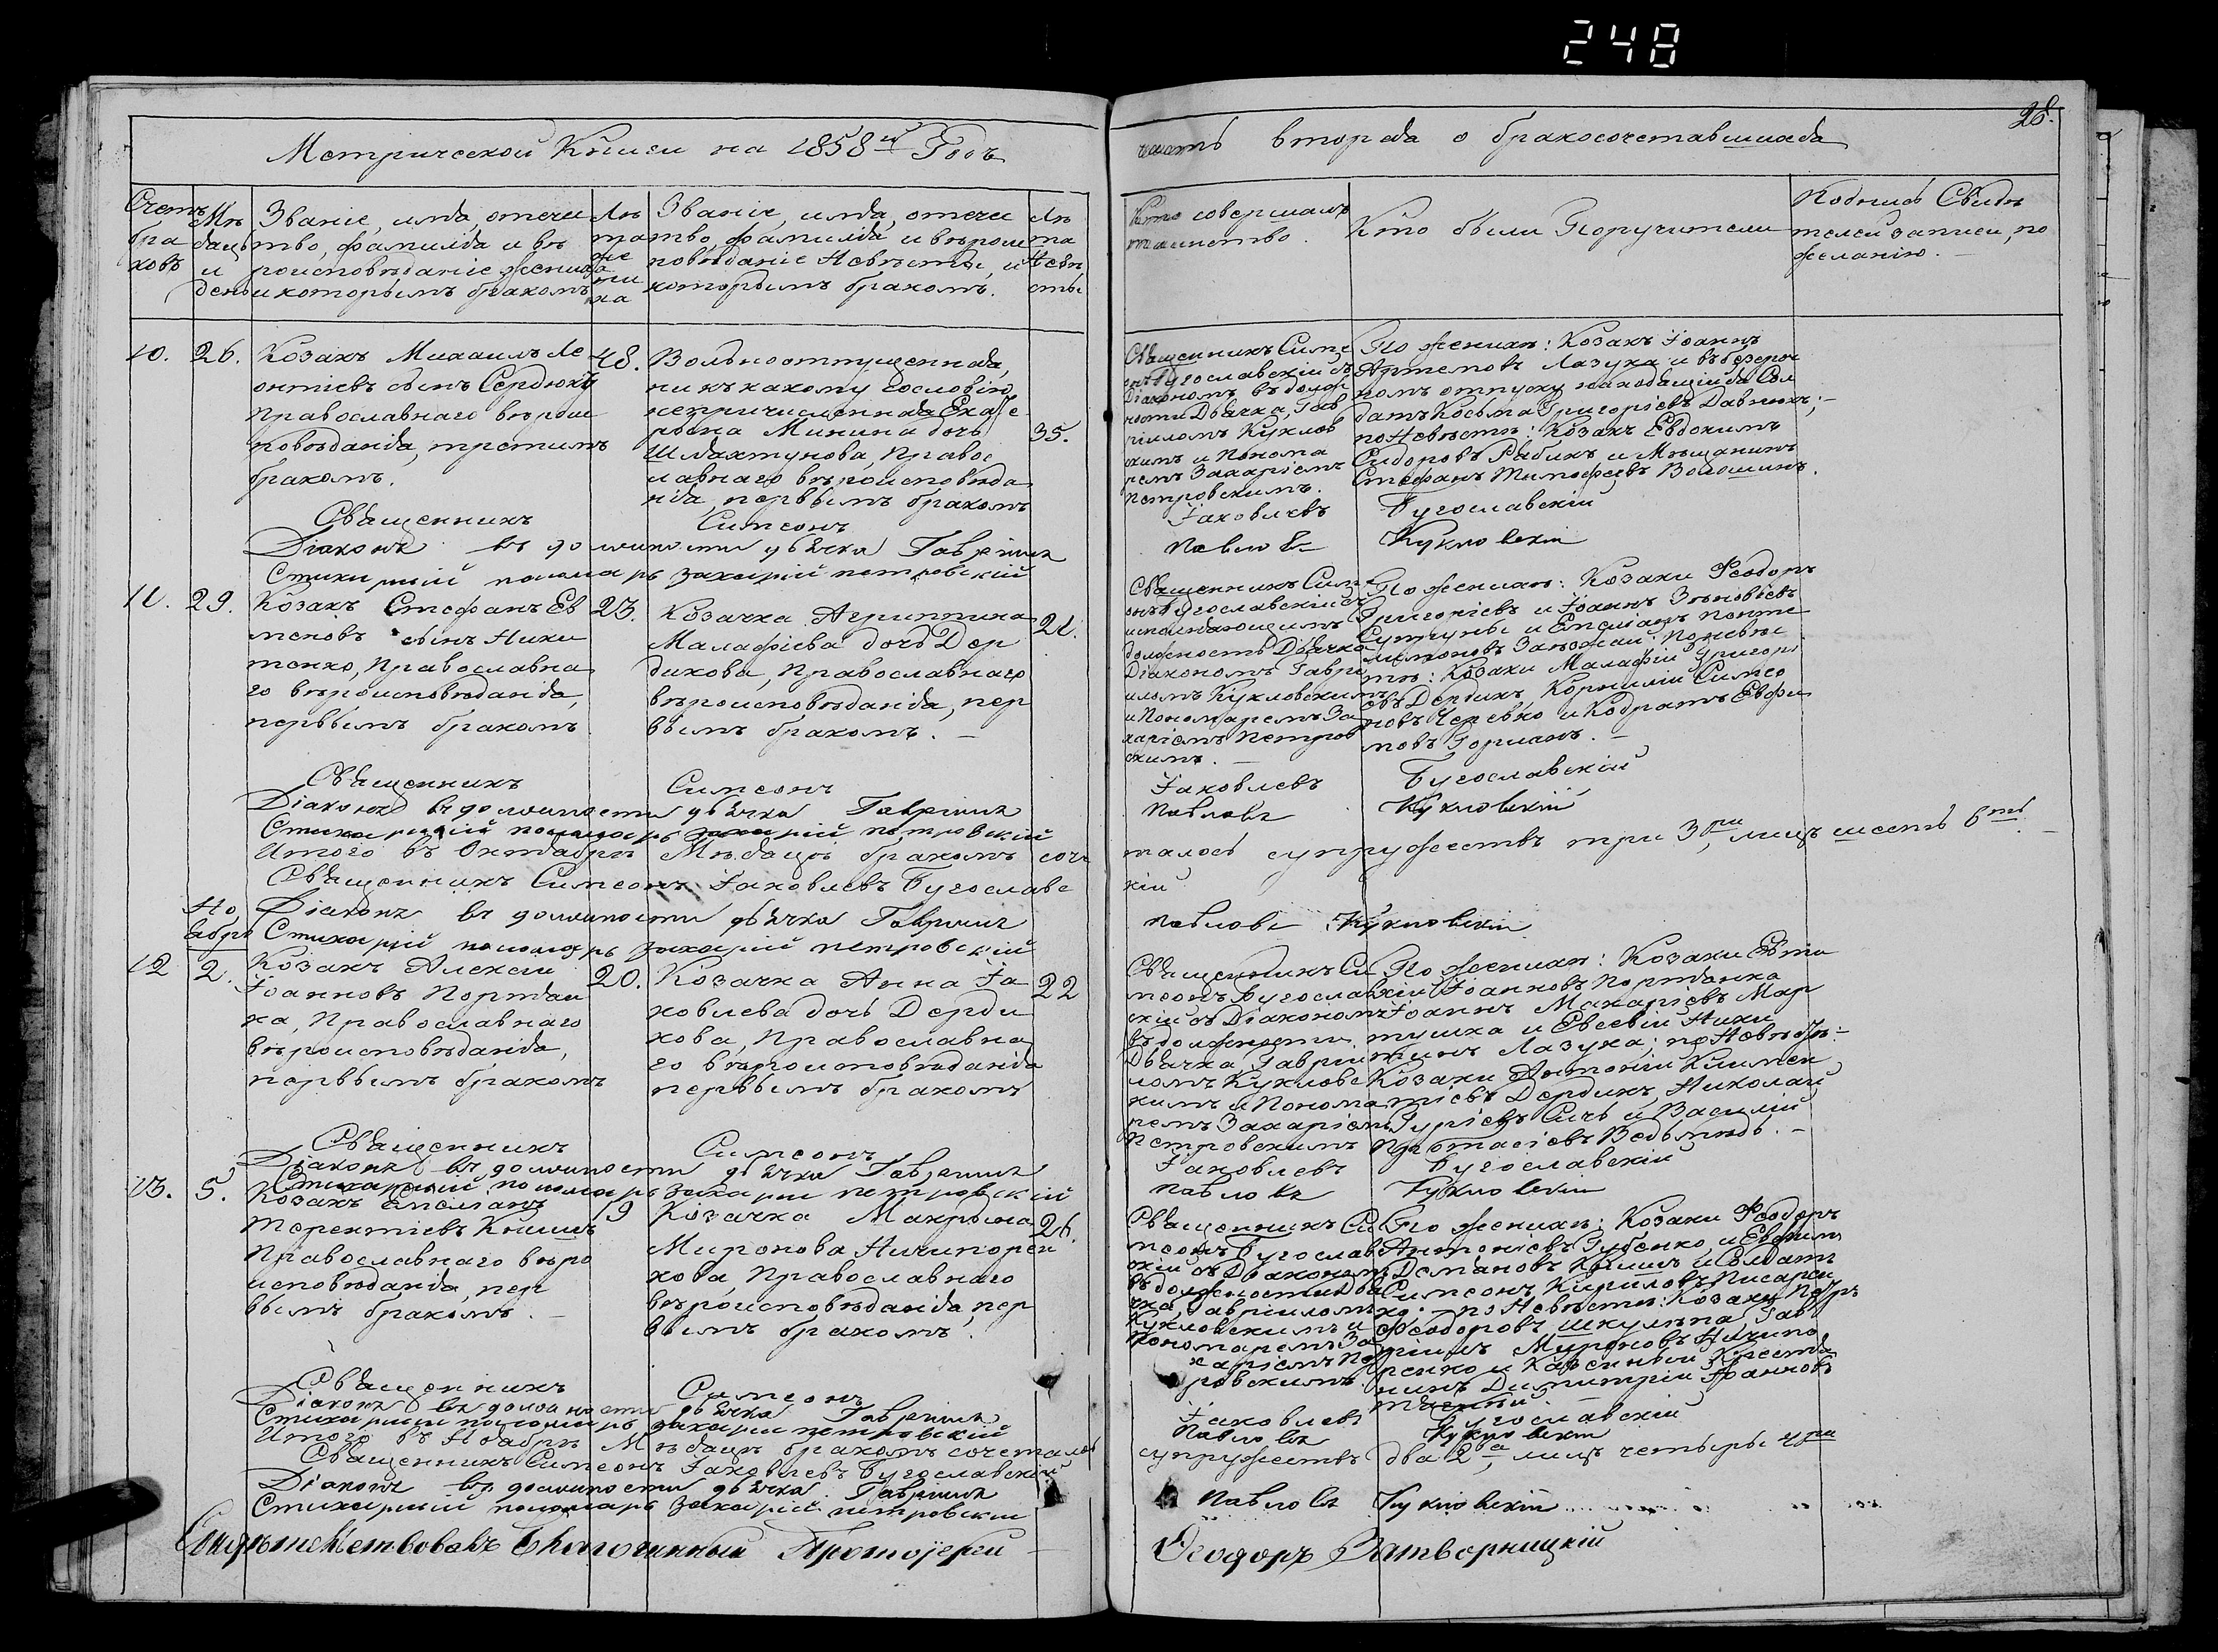 248
28.
Метрической Книги на 1858й Годъ
часть вторая о бракосочетавшихся
Счетъ браковъ
Мѣсяцъ и день
Званіе, имя, отечество, фамилія и вѣроисповѣданіе жениха и которымъ бракомъ
Лѣта жениха
Званіе, имя, отечество, фамилія и вѣроисповѣданіе Невѣсты, и которымъ бракомъ.
Лѣта Невѣсты
Кто совершалъ таинство.
Кто были Поручители
Подпись Свидѣтелей записи, по желанію.
10.
26.
Козакъ Михаилъ Ле
онтіевъ сынъ Сердюкъ
Православнаго вѣроис
повѣданія, третимъ
бракомъ.
48.
Вольноотпущенная,
ни къ какому сословію
непричисленная Екате
рина Минина дочь
Шляхтунова, Правос
лавнаго вѣроисповѣда
нія, первымъ бракомъ
35.
Священникъ Симе
онъ Бугославскій съ
Діакономъ въ долж
ности Дьячка, Гав
ріиломъ Куклов
скимъ и Понома
ремъ Захаріемъ
Петровскимъ.
По женихѣ: Козакъ Іоаннъ
Артемовъ Лазука и въ безсроч
номъ отпуску находящійся Сол
датъ Косьма Григоріевъ Давнюкъ;
по Невѣстѣ: Козакъ Евдокимъ
Сидоровъ Рабикъ и Мѣщанинъ
Стефанъ Тимофеевъ Волошинъ.
Священникъ Симеонъ Іаковлевъ Бугославскій
Діаконъ въ должности дьячка Гавріилъ Павловъ Кукловскій
Стихарный пономарь Захарій Петровскій
11.
29.
Козакъ Стефанъ Ев
меновъ сынъ Ники
тенко, Православна
го вѣроисповѣданія,
первымъ бракомъ
23.
Козачка Агриппина
Малафіева дочь Дер
дикова, Православнаго
вѣроисповѣданія, пер
вымъ бракомъ.
21.
Священникъ Симе
онъ Бугославскій съ
исполяющимъ
должность Дьячка
Діакономъ Гаври
иломъ Кукловскимъ
и Пономаремъ За
харіемъ Петров
скимъ.
По женихѣ: Козаки Феодоръ
Григоріевъ и Іоаннъ Зѣновіевъ
Супруны и Емеліанъ Панте
лимоновъ Заножай: По невѣс
тѣ: Козаки Малафій Григорі
евъ Дердикъ, Корнилій Симео
новъ Черевко и Кодратъ Евфи
мовъ Горманъ.
Священникъ Симеонъ Іаковлевъ Бугославскій
Діаконъ въ должности дьячка Гавріилъ Павловъ Кукловскій
Стихарный пономарь Захарій Петровскій
Итого въ Октябрѣ Мѣсяцѣ бракомъ соче
талось супружествъ три 3ри, лицъ шесть 6ть.
Священникъ Симеонъ Іаковлевъ Бугославс
кій
Діаконъ въ должности дьячка Гавріилъ Павловъ Кукловскій
Стихарный пономарь Захарій Петровскій
Но
ябрь
12
2.
Козакъ Алексій
Іоанновъ Портян
ка, Православнаго
вѣроисповѣданія,
первымъ бракомъ
20.
Козачка Анна Іа
ковлева дочь Дерди
кова, Православна
го вѣроисповѣданія
первымъ бракомъ
22
Священникъ Си
меонъ Бугослав
скій съ Діакономъ
въ должности
Дьячка, Гавріи
ломъ Кукловс
кимъ и Понома
ремъ Захаріемъ
Петровскимъ
По женихѣ: Козаки Евти
хій Іоанновъ Портянка
Іоаннъ Макаріевъ Мар
тушка и Евсевій Ники
тинъ Лазука; по Невѣстѣ:
Козаки Антоній Климен
тіевъ Дердикъ, Николай
Гуріевъ Сичь и Василій
Протасіевъ Ведьмѣдь.
Священникъ Симеонъ Іаковлевъ Бугославскій
Діаконъ въ должности дьячка Гавріилъ Павловъ Кукловскій
Стихарный пономарь Захарій Петровскій
13.
5.
Козакъ Емеліанъ
Терентіевъ Книшъ
Православнаго вѣро
исповѣданія, пер
вымъ бракомъ.
19
Козачка Макрына
Миронова Ничипорен
кова, Православнаго
вѣроисповѣданія, пер
вымъ бракомъ.
26.
Священникъ Си
меонъ Бугослав
скій съ Діакономъ
въ должности Дья
чка, Гавріиломъ
Кукловскимъ и
Пономаремъ За
харіемъ Пет
ровскимъ.
По женихѣ: Козаки Феодоръ
Антоніевъ Губенко, и Евфимъ
Демяновъ Книшъ и Солдатъ
Симеонъ Кириловъ Писарен
ко; по Невѣстѣ: Козаки Петръ
Феодоровъ Шкулѣпа, Гав
ріилъ Мироновъ Ничипо
ренко и Казенный Крестья
нинъ Димитрій Іоанновъ
Священникъ Симеонъ Іаковлевъ Бугославскій
Діаконъ въ должности дьячка Гавріилъ Павловъ Кукловскій
Стихарный пономарь Захарій Петровскій
Итого въ Ноябрѣ Мѣсяцѣ бракомъ сочеталось
супружествъ два 2ва, лицъ четыре 4ри
Священникъ Симеонъ Іаковлевъ Бугославскій
Діаконъ въ должности дьячка Гавріилъ Павловъ Кукловскій
Стихарный пономарь Захарій Петровскій
Свидѣтельствовалъ Благочинный Протоіерей Феодоръ Затворницкій